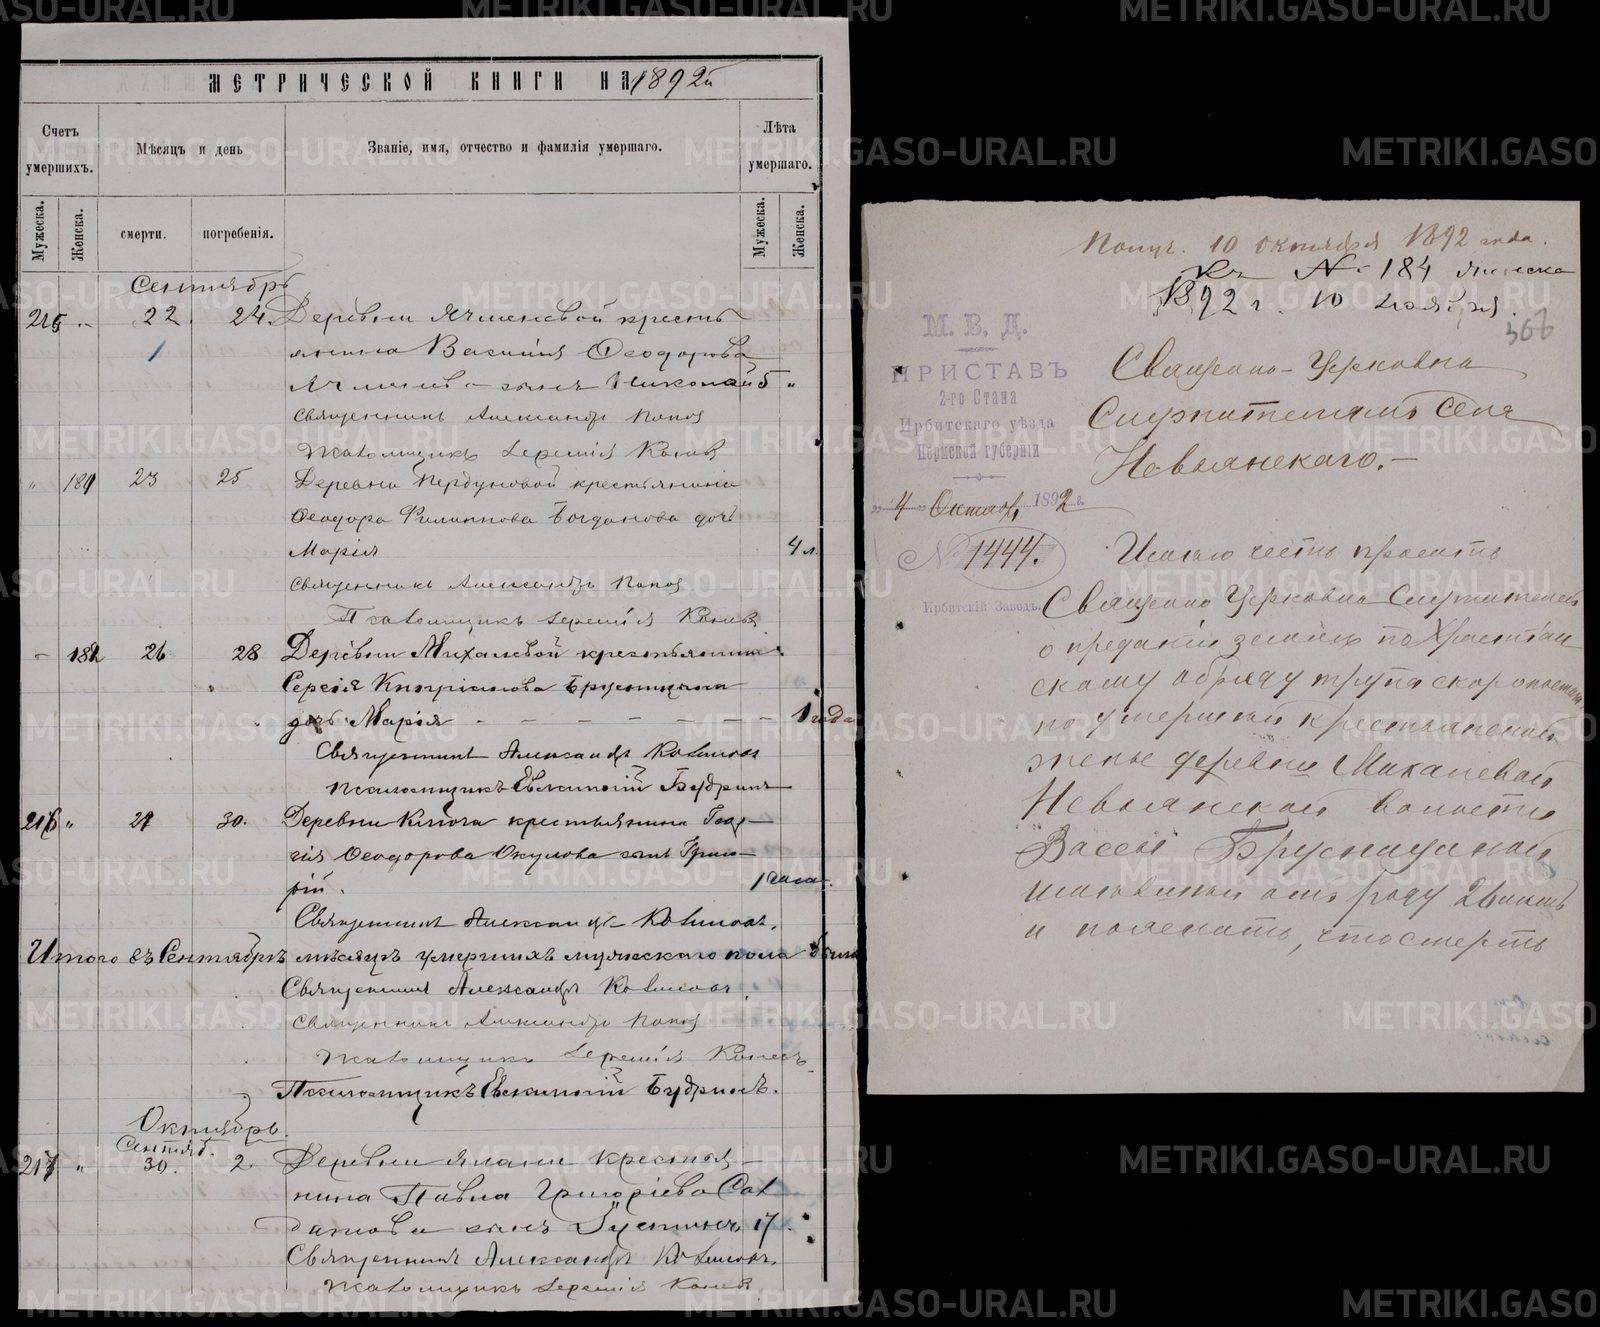 МЕТРИЧЕСКОЙ КНИГИ НА 1892й
Счетъ умершихъ.
Мѣсяцъ и день
Званіе, имя, отчество и фамилія умершаго.
Лѣта умершаго.
Мужеска.
Женска.
смерти.
погребенія.
Мужеска.
Женска.
Сентябрь
215 22. 24. Деревни Ячменевой кресть-
1 янина Василія Ѳеодорова
Ячменева сынъ Николай 5 "
Священникъ Александръ Попов
Псаломщикъ Іеремія Конев
" 181 23 25 Деревни Пердуновой крестьянина
Ѳеодора Филиппова Богданова дочь
Марія 4 л.
Священникъ Александръ Попов
Псаломщикъ Іеремія Конев
182 26 28 Деревни Михалевой крестьянина
Сергія Кипріанова Брусницына
дочь Марія 1 года
Священникъ Александръ
Псаломщикъ Евлампій Будринъ
216 " 29 30. Деревни Ключа крестьянина Геор-
гія Ѳеодорова Окулова сынъ Григо-
рій. 1 часа.
Священникъ Александръ
Итого въ Сентябрѣ мѣсяцѣ умершихъ мужескаго пола
Священникъ Александръ
Священникъ Александръ Попов
Псаломщикъ Іеремія Конев
Псаломщикъ Евлампій Будринъ.
Октябрь.
Сентяб.
217 " 30. 2. Деревни Ялани крестья-
нина Павла Григоріева Сол
датова сынъ Іустинъ 17.
Священникъ Александръ
Псаломщикъ Іеремія Конев
Получ. 10 октября 1892 года.
Къ № 184 женска
1892 г. 10 ноября.
306
М. В. Д.
ПРИСТАВЪ
2-го Стана
Ирбитскаго уѣзда
Пермской губерніи
" 4 " Октября 1892 г.
№ 1444.
Ирбитскій Заводъ.
Священно-Церковно
Служителямъ Села
Невьянскаго.
Имѣю честь просить
Священно Церковно Служителей
о преданіи землѣ по Христіан
скому обряду трупа скоропостиж
но умершей крестьянской
жены деревни Михалевой
Невьянской волости
Вассы Брусницыной
имѣвшей отъ роду 26 лѣтъ
и пояснить, что смерть
METRIKI.GASO-URAL.RU